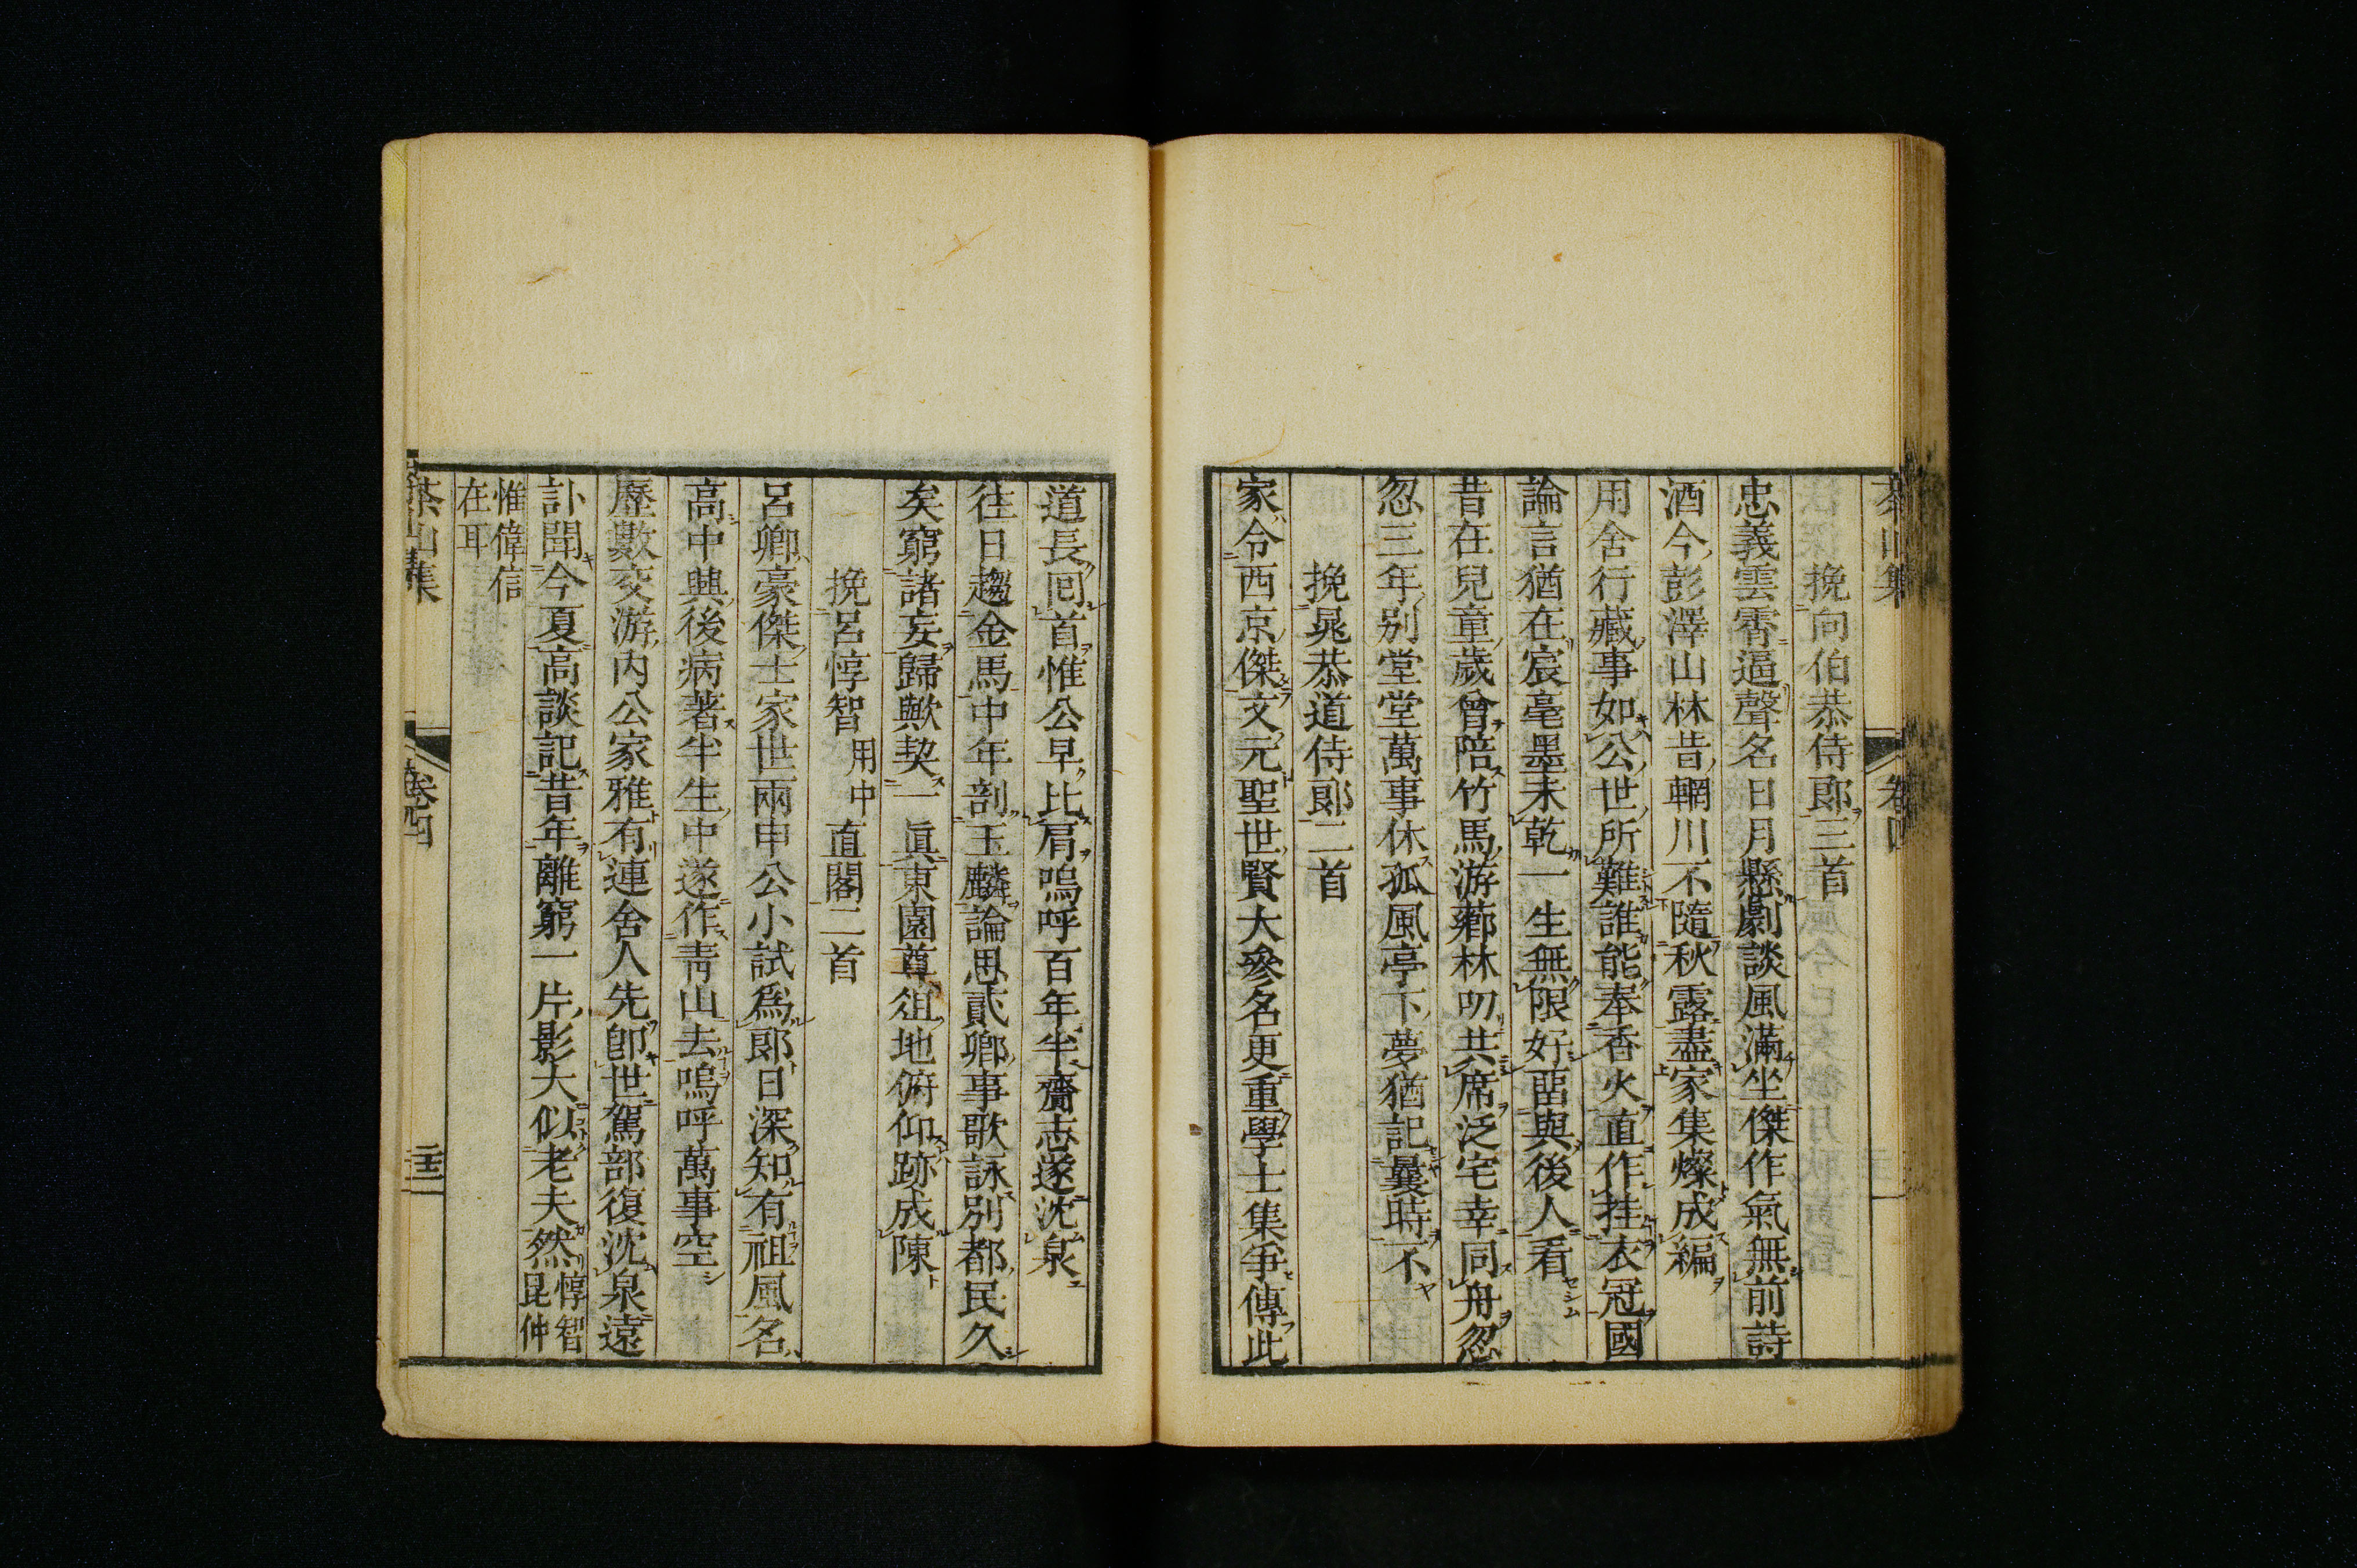 茶山集 卷四
挽向伯恭侍郎三首
忠義雲霄逼聲名日月懸劇談風滿坐傑作氣無前詩
酒今彭澤山林昔輞川不隨秋露盡家集燦成編
用舍行藏事如公世所難誰能奉香火直作挂衣冠國
論言猶在宸毫墨未乾一生無限好畱與後人看
昔在兒童歲曾陪竹馬游薌林叨共席泛宅幸同舟忽
忽三年别堂堂萬事休孤風亭下夢猶記曩時不
挽晁恭道侍郎二首
家令西京傑文元聖世賢大參名更重學士集爭傳此
道長回首惟公早比肩嗚呼百年半齎志遂沈泉
往日趨金馬中年剖玉麟論思貳卿事歌詠别都民久
矣窮諸妄歸歟契一眞東園尊俎地俯仰跡成陳
挽呂惇智用中直閣二首
呂卿豪傑士家世兩申公小試爲郎日深知有祖風名
高中興後病著半生中遂作靑山去嗚呼萬事空
歷數交游内公家雅有連舍人先卽世駕部復沈泉遠
訃聞今夏高談記昔年離窮一片影大似老夫然惇智昆仲
惟偉信
在耳
茶山集 卷四 二十三